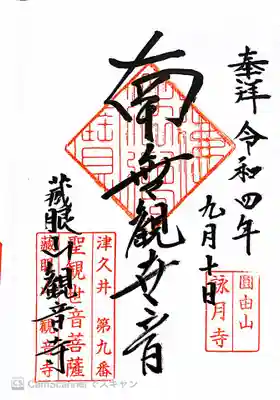 奉拝 令和四年
九月十日
圓由山
詠月寺
南無観世音
津久井 第九番
聖観世音菩薩
藏眼山観音寺
CS CamScanner でスキャン